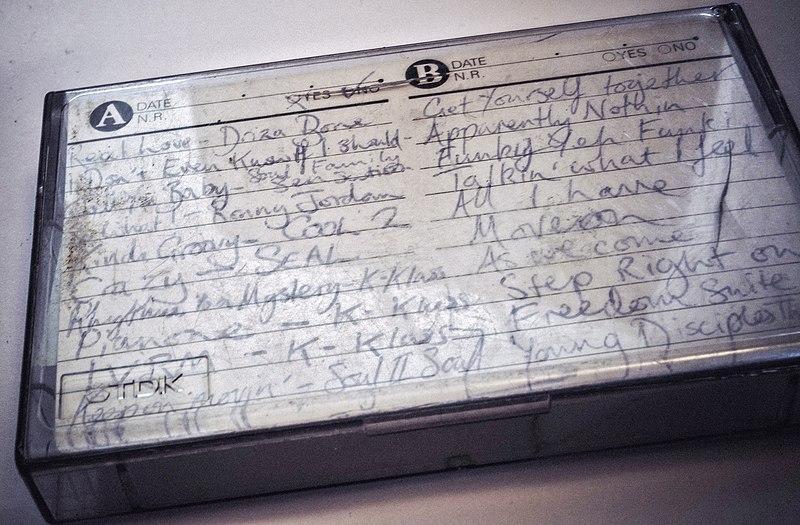 A DATE N.R. YES NO
Real Love - Driza Bone
I Don't Even Know If I Should -
Soul Family
Baby - Sensation
- Ronny Jordan
Kinda Groovy - Cool 2
Crazy - SEAL
Rhythm is a Mystery - K-Klass
Pianone - K-Klass
- K-Klass
Keep on movin' - Soul II Soul
TDK
B DATE N.R. YES NO
Get Yourself together
Apparently Nothin
Funky Yeh Funki
Talkin' what I feel
All I have
Move on
As we come
Step Right on
Freedom Suite
Young Disciples